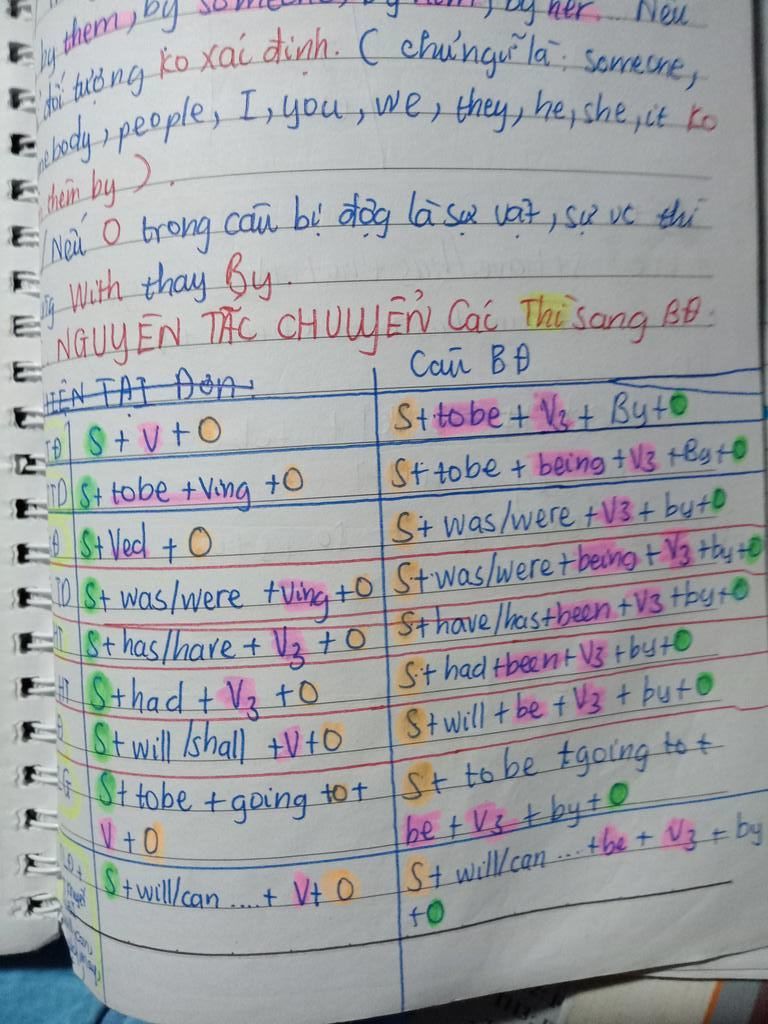 by them, by someone, by him, by her. Nếu
đối tượng ko xác định. ( chủ ngữ là: someone,
body, people, I, you, we, they, he, she, it ko
thêm by ).
Nếu O trong câu bị động là sự vật, sự vc thì
With thay By.
NGUYÊN TẮC CHUYỂN Các Thì sang BĐ.
HIỆN TẠI ĐƠN.
Câu BĐ
S + V + O
S + to be + V3 + By + O
TD S + to be + Ving + O
S + to be + being + V3 + By + O
Đ S + Ved + O
S + was/were + V3 + by + O
TD S + was/were + Ving + O
S + was/were + being + V3 + by + O
HT S + has/have + V3 + O
S + have/has + been + V3 + by + O
HT S + had + V3 + O
S + had + been + V3 + by + O
Đ S + will/shall + V + O
S + will + be + V3 + by + O
G S + to be + going to +
V + O
S + to be + going to +
be + V3 + by + O
S + will/can .... + V + O
S + will/can ... + be + V3 + by
+ O